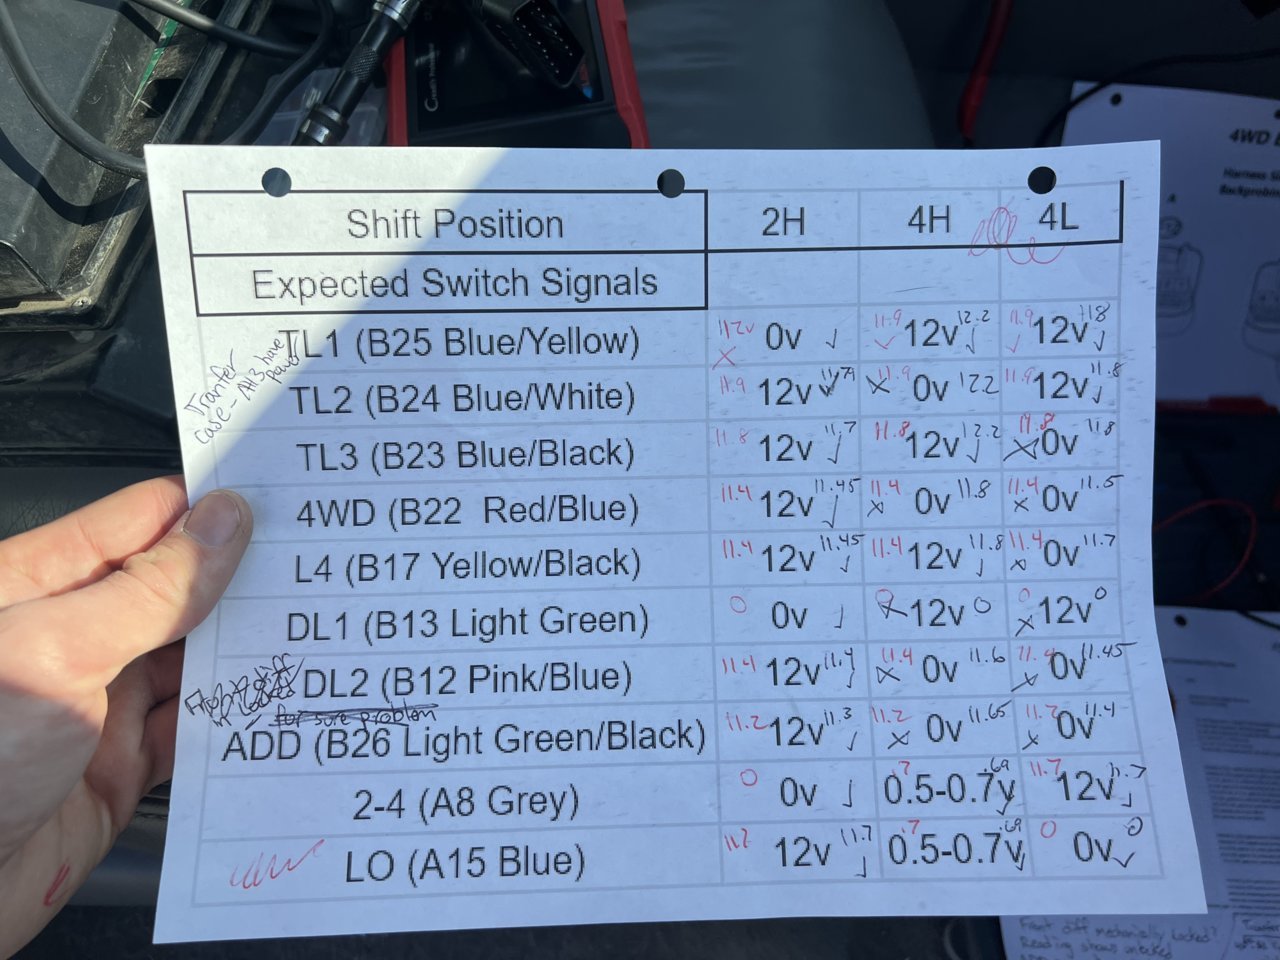 Shift Position 2H 4H 4L
Expected Switch Signals
TL1 (B25 Blue/Yellow) 0v ✓ 11.9 ✓ 12v 12.2 ✓ 11.9 ✓ 12v 11.8 ✓
Tranfer case - All 3 have power
TL2 (B24 Blue/White) 11.9 12v 11.79 ✓ X 11.9 0v 12.2 11.9 12v 11.8 ✓
TL3 (B23 Blue/Black) 11.8 12v 11.7 ✓ 11.8 12v 12.2 ✓ 11.8 X 0v 11.8
4WD (B22 Red/Blue) 11.4 12v 11.45 ✓ 11.4 X 0v 11.8 11.4 X 0v 11.5
L4 (B17 Yellow/Black) 11.4 12v 11.45 ✓ 11.4 12v 11.8 ✓ 11.4 X 0v 11.7
DL1 (B13 Light Green) 0 0v ✓ 0 X 12v 0 0 X 12v 0
DL2 (B12 Pink/Blue) 11.4 12v 11.4 ✓ 11.4 X 0v 11.6 11.4 X 0v 11.45
for sure problem
ADD (B26 Light Green/Black) 11.2 12v 11.3 ✓ 11.2 X 0v 11.65 11.2 X 0v 11.4
2-4 (A8 Grey) 0 0v ✓ .7 0.5-0.7v .69 ✓ 11.7 12v 11.7 ✓
LO (A15 Blue) 12v 11.7 ✓ .7 0.5-0.7v .69 ✓ 0 0v 0 ✓
4WD
Harness
Backprobin
A
Front diff mechanically locked?
Reading shows unlocked